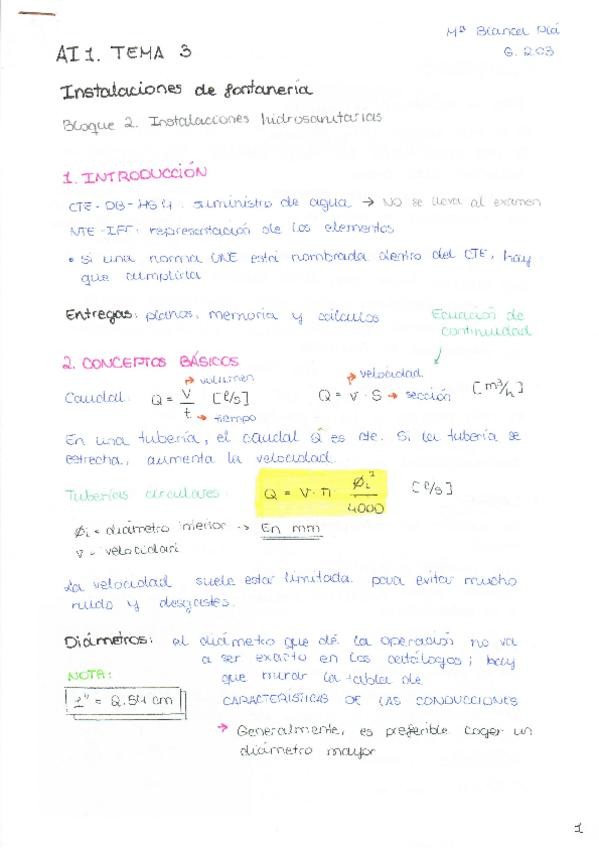 Mª Blancel Plá
AI 1. TEMA 3
G. 203
Instalaciones de fontanería
Bloque 2. Instalaciones hidrosanitarias
1. INTRODUCCIÓN
CTE-DB-HS4: suministro de agua → NO se lleva al examen
NTE-IFF: representación de los elementos
• Si una norma UNE está nombrada dentro del CTE, hay
que cumplirla
Entregas: planos, memoria y cálculos
Ecuación de
continuidad
2. CONCEPTOS BÁSICOS
Caudal: Q = V/t [l/s]
→ volumen
→ tiempo
Q = v · S → sección [m³/h]
→ velocidad
En una tubería, el caudal Q es cte. Si la tubería se
estrecha, aumenta la velocidad
Tuberías circulares: Q = v · π · øi²/4000 [l/s]
øi = diámetro interior → En mm
v = velocidad
La velocidad suele estar limitada para evitar mucho
ruido y desgastes.
Diámetros: el diámetro que dé la operación no va
a ser exacto en los catálogos; hay
que mirar la tabla de
CARACTERÍSTICAS DE LAS CONDUCCIONES
NOTA:
1" = 2.54 cm
→ Generalmente, es preferible coger un
diámetro mayor
1